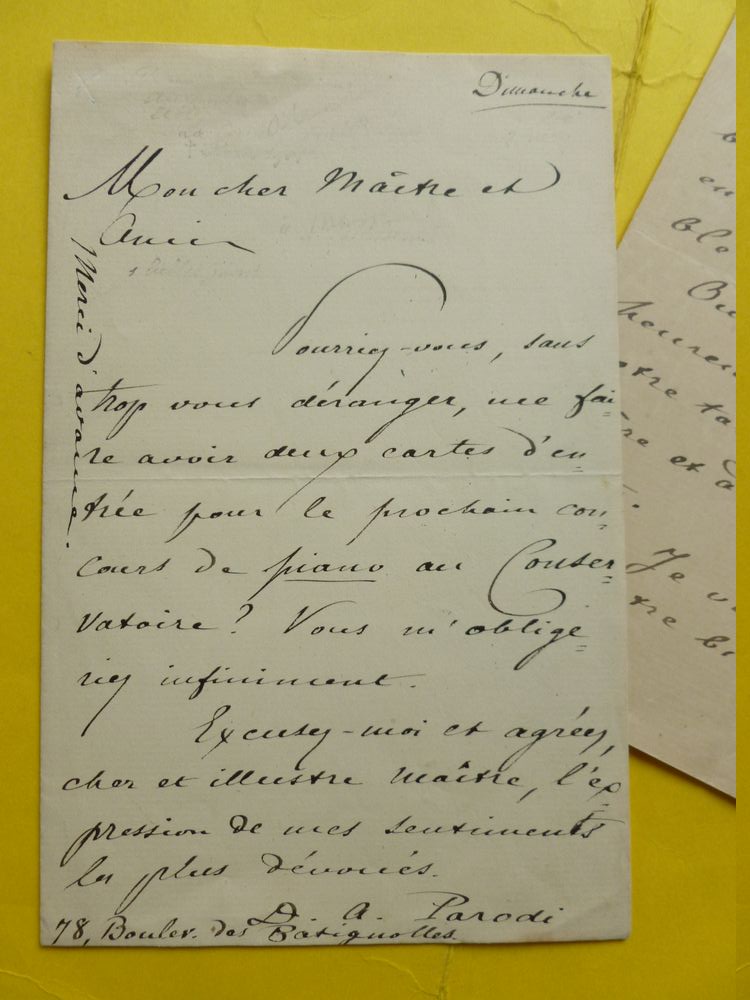 Dimanche
Mon cher Maître et
Ami
Pourriez-vous, sans
trop vous déranger, me fai-
re avoir deux cartes d'en=
trée pour le prochain con=
cours de piano au Conser=
vatoire? Vous m'oblige=
riez infiniment.
Excusez-moi et agréez,
cher et illustre maître, l'ex=
pression de mes sentiments
les plus dévoués.
D. A. Parodi
78, Boulev. des Batignolles.
Merci d'avance.
en
ble
heureu
otre ta
re et d
Je v
tre bi